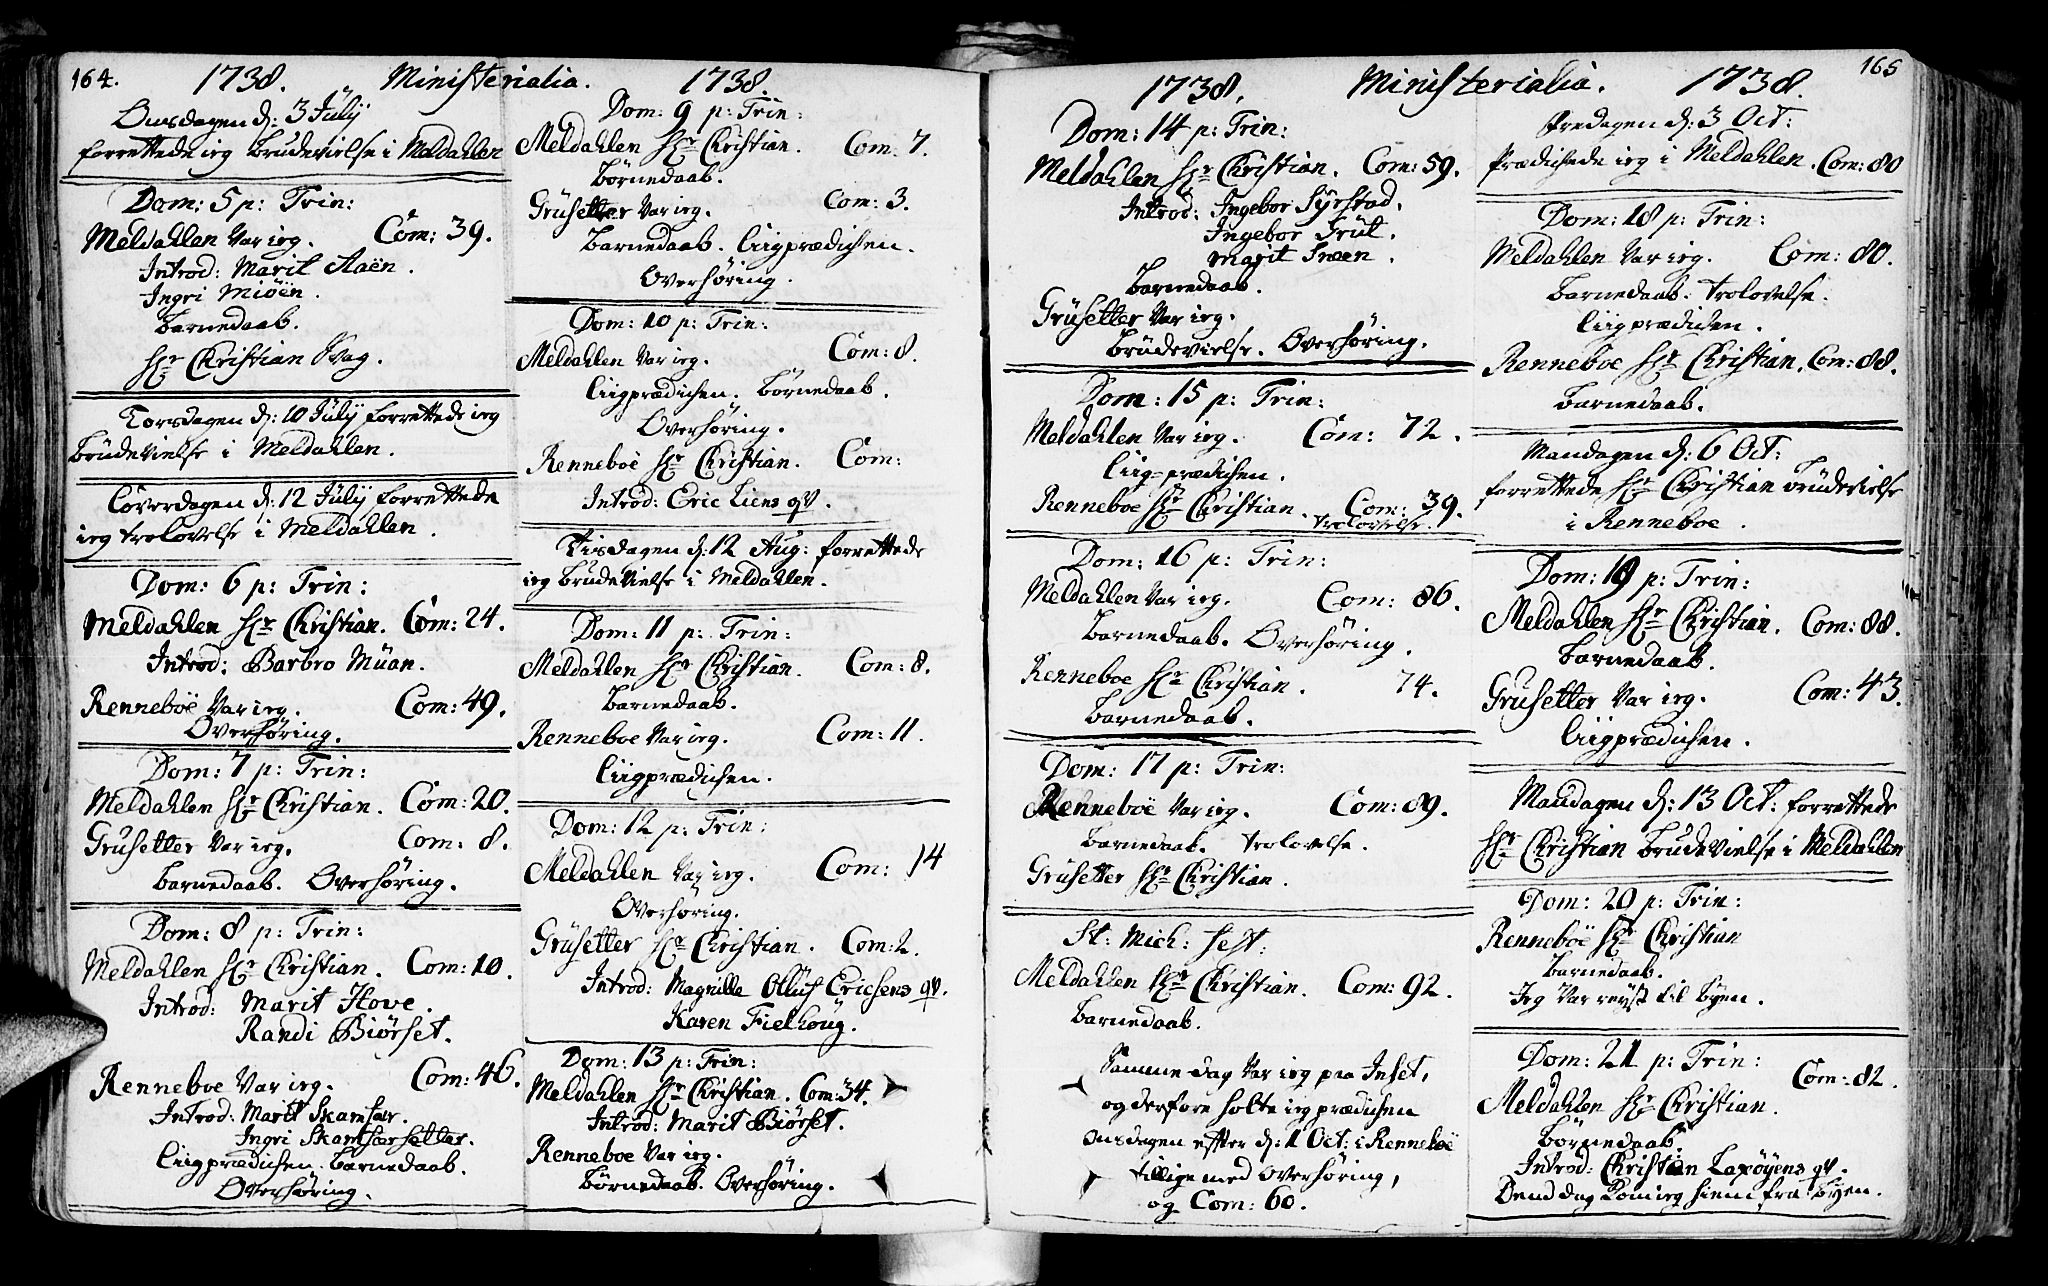 164. 1738. Ministerialia. 1738.
Onsdagen d: 3 Julÿ
forrettede ieg Brudevielse i Meldahlen
Dom: 5 p: Trin:
Meldahlen Var ieg. Com: 39.
Introd: Marit Aaën.
Ingri Miöen.
Barnedaab.
Hr Christian Svag.
Torsdagen d: 10 Julÿ forrettede ieg
Brudevielse i Meldahlen.
Löverdagen d: 12 Julÿ forrettede
ieg trolovelse i Meldahlen.
Dom: 6 p: Trin:
Meldahlen Hr Christian. Com: 24.
Introd: Barbro Müan.
Renneboe Var ieg. Com: 49.
Overhöring.
Dom: 7 p: Trin:
Meldahlen Hr Christian. Com: 20.
Grüsetter Var ieg. Com: 8.
Barnedaab. Overhöring.
Dom: 8 p: Trin:
Meldahlen Hr Christian. Com: 10.
Introd: Marit Hove.
Randi Biörset.
Renneboe Var ieg. Com: 46.
Introd: Marit Skamfær.
Ingri Skamfærsetter.
Liigprædichen. Barnedaab.
Overhöring.
Dom: 9 p: Trin:
Meldahlen Hr Christian. Com: 7.
Börnedaab.
Grüsetter Var ieg. Com: 3.
Barnedaab. Liigprædichen.
Overhöring.
Dom: 10 p: Trin:
Meldahlen Var ieg. Com: 8.
Liigprædichen. Börnedaab.
Overhöring.
Renneboe Hr Christian. Com:
Introd: Eric Liens qv.
Tisdagen d: 12 Aug: forrettede
ieg Brudevielse i Meldahlen.
Dom: 11 p: Trin:
Meldahlen Hr Christian. Com: 8.
Barnedaab.
Renneboe Var ieg. Com: 11.
Liigprædichen.
Dom: 12 p: Trin:
Meldahlen Var ieg. Com: 14
Overhöring.
Grüsetter Hr Christian. Com: 2.
Introd: Magnille Olluf Ericsens qv.
Karen Fielhoug.
Dom: 13 p: Trin:
Meldahlen Hr Christian. Com: 34.
Introd: Marit Biörset.
Renneboe Var ieg.
Börnedaab. Overhöring.
1738. Ministerialia. 1738. 165
Dom: 14 p: Trin:
Meldahlen Hr Christian. Com: 59.
Introd: Ingebor Syrstad.
Ingebor Grüt.
Marit Snoen.
Barnedaab.
Grüsetter Var ieg.
Brüdevielse. Overhöring.
Dom: 15 p: Trin:
Meldahlen Var ieg. Com: 72.
Liig-prædichen.
Renneboe Hr Christian. Com: 39.
Trolovelse.
Dom: 16 p: Trin:
Meldahlen Var ieg. Com: 86.
Barnedaab. Overhöring.
Renneboe Hr Christian. 74.
Barnedaab.
Dom: 17 p: Trin:
Renneboe Var ieg. Com: 89.
Barnedaab. Trolovelse.
Grüsetter Hr Christian.
St: Mich: Fest:
Meldahlen Hr Christian. Com: 92.
Barnedaab.
Samme dag Var ieg paa Inset,
og derfore holte ieg prædichen
Onsdagen effter d: 1 Oct: i Renneboe
tillige med Overhöring,
og Com: 60.
Fredagen d: 3 Oct:
Prædichede ieg i Meldahlen. Com: 80
Dom: 18 p: Trin:
Meldahlen Var ieg. Com: 80.
Barnedaab. Trolovelse.
Liigprædichen.
Renneboe Hr Christian. Com: 88.
Barnedaab.
Mandagen d: 6 Oct:
forrettede Hr Christian Brüdevielse
i Renneboe.
Dom: 19 p: Trin:
Meldahlen Hr Christian. Com: 88.
Barnedaab.
Grüsetter Var ieg. Com: 43.
Liigprædichen.
Mandagen d: 13 Oct: forrettede
Hr Christian Brüdevielse i Meldahlen
Dom: 20 p: Trin:
Renneboe Hr Christian
Barnedaab.
Jeg Var reyst til Byen.
Dom: 21 p: Trin:
Com: 82.
Meldahlen Hr Christian.
Börnedaab
Introd: Christian Laxöyens qv.
Dend dag kom ieg hiem fra Byen.